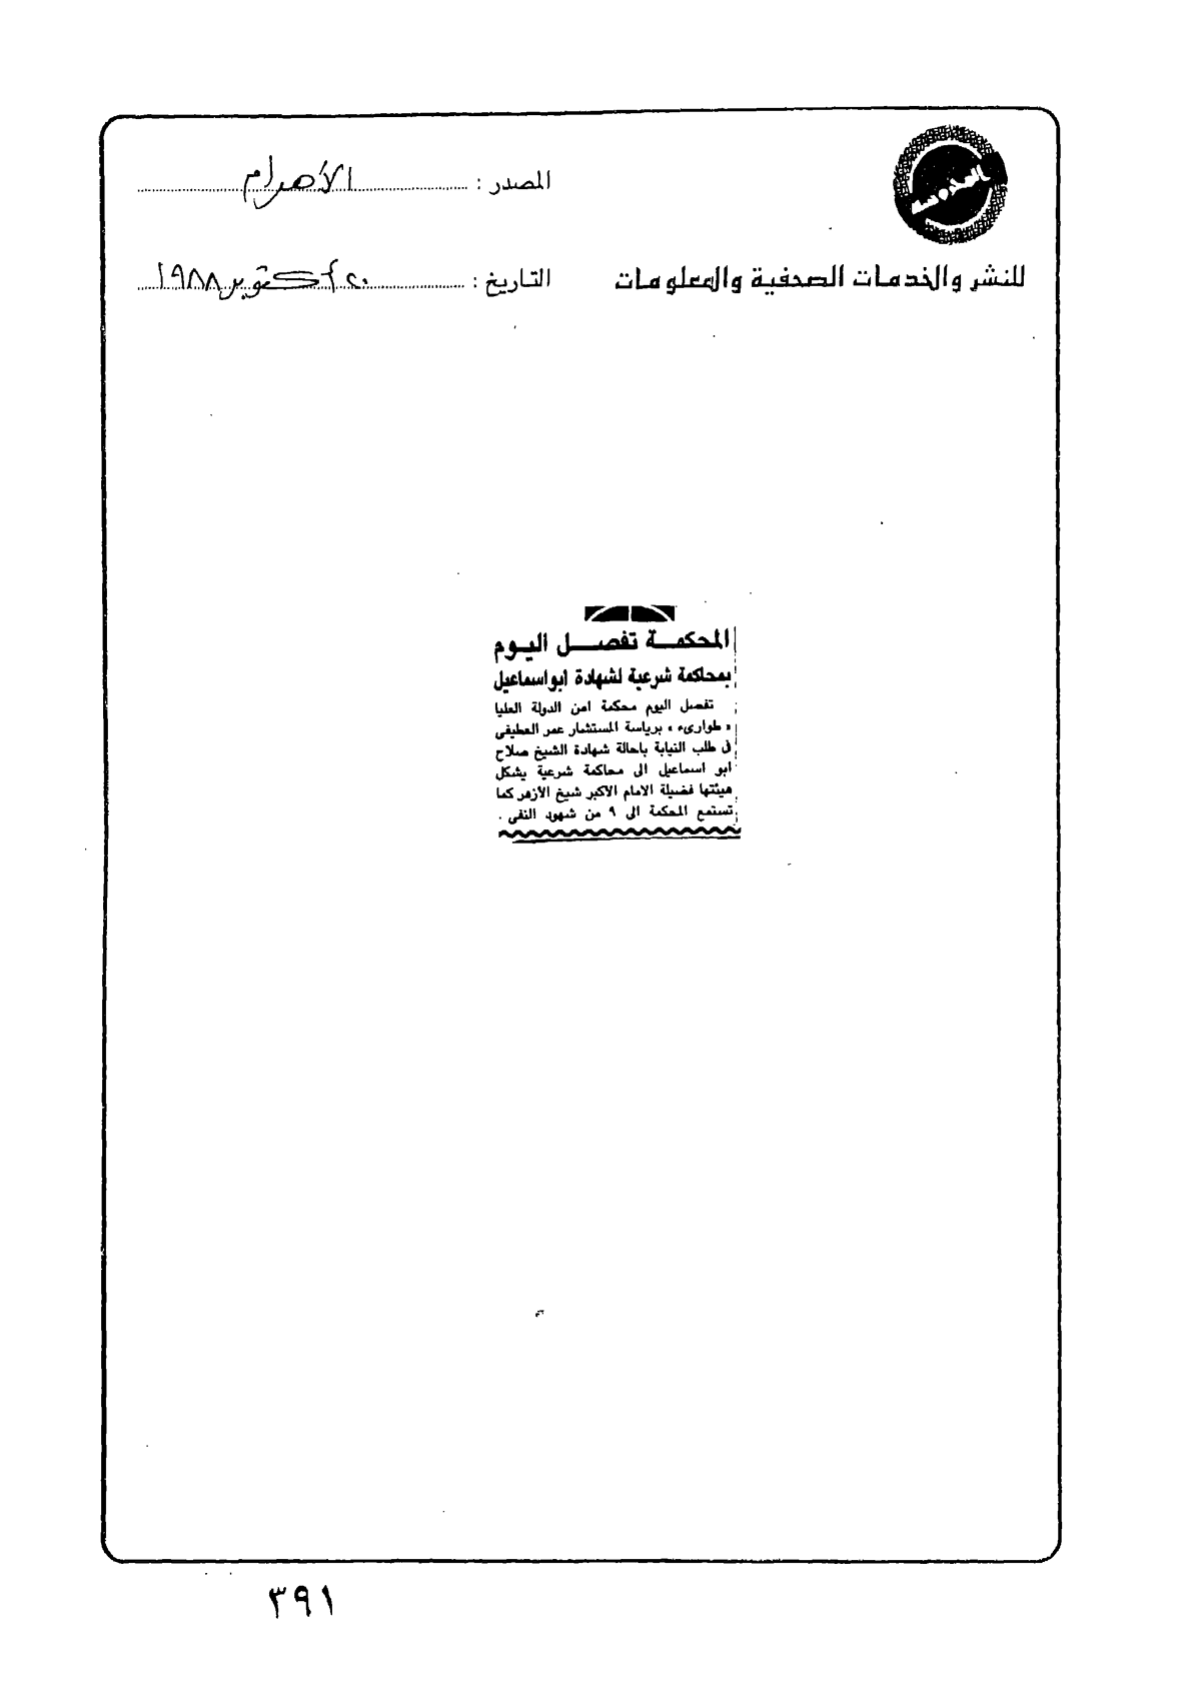 المصدر : الأهرام
للنشر والخدمات الصحفية والمعلومات
التاريخ : ٢٠ أكتوبر ١٩٨٨
المحكمــة تفصـــل اليــوم
بمحاكمة شرعية لشهادة ابواسماعيل
تفصل اليوم محكمة امن الدولة العليا
« طوارىء » برياسة المستشار عمر العطيفى
فى طلب النيابة باحالة شهادة الشيخ صلاح
ابو اسماعيل الى محاكمة شرعية يشكل
هيئتها فضيلة الامام الاكبر شيخ الأزهر كما
تستمع المحكمة الى ٩ من شهود النفى .
٣٩١